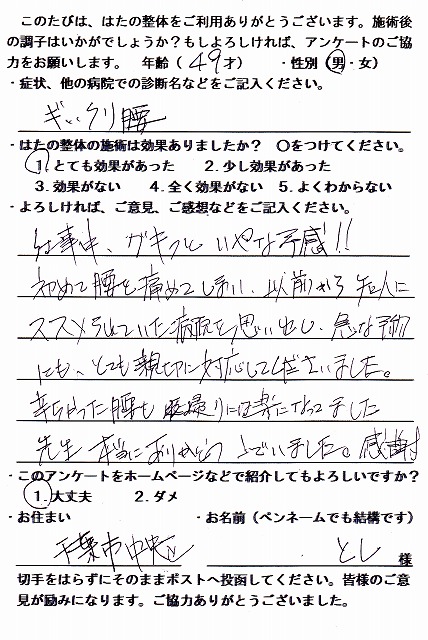 このたびは、はたの整体をご利用ありがとうございます。施術後
の調子はいかがでしょうか？もしよろしければ、アンケートのご協
力をお願いします。　年齢（ 49才）　・性別（男・女）
・症状、他の病院での診断名などをご記入ください。
ぎっくり腰
・はたの整体の施術は効果ありましたか？　〇をつけてください。
1. とても効果があった　2. 少し効果があった
3. 効果がない　4. 全く効果がない　5. よくわからない
・よろしければ、ご意見、ご感想などをご記入ください。
仕事中、ガキッといやな予感!!
初めて腰を痛めてしまい、以前から知人に
ススメられていた病院を思い出し、急な予約
にも、とても親切に対応してくださいました。
辛らかった腰も帰りには楽になってました
先生 本当にありがとうございました。感謝
・このアンケートをホームページなどで紹介してもよろしいですか？
1. 大丈夫　2. ダメ
・お住まい　・お名前（ペンネームでも結構です）
千葉市中央区　とし　様
切手をはらずにそのままポストへ投函してください。皆様のご意
見が励みになります。ご協力ありがとうございました。